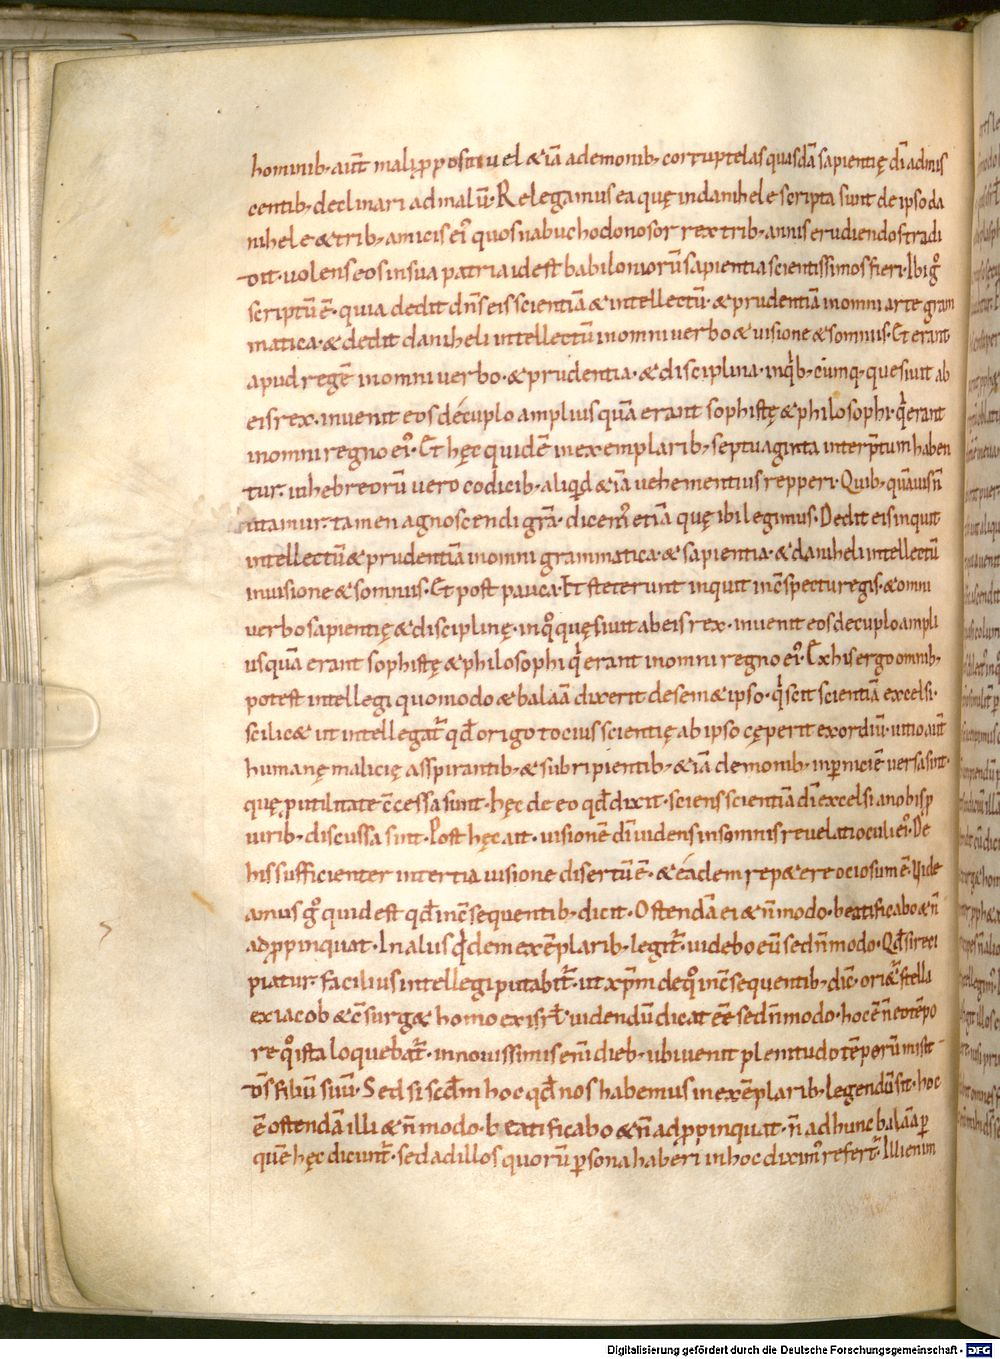 hominib; aut̄ mali ꝓpositi uel &iā ademonib; corruptelas quasdā sapientię dī admis
centib; declinari admalū. Relegamus ea quę indanihele scripta sunt de ipso da
nihele & trib; amicis ei᾽ quos nabuchodonosor rex trib; annis erudiendos tradi
dit· uolens eos insua patria id est babiloniorū sapientia scientissimos fieri· Ibi gͦ
scriptū ē· quia dedit dn̄s eis scientiā & intellectū· & prudentiā inomni arte gram
matica· & dedit daniheli intellectū inomni uerbo & uisione & somniis· Et erant
apud regē inomni uerbo· & prudentia· & disciplina· inqͥb; cūmq; quesiuit ab
eis rex· inuenit eos décuplo amplius quā erant sophistę & philosophi· qͥ erant
inomni regno ei᾽· Et hęc quidē inexemplarib; septuaginta interp̄tum haben
tur· inhebreorū uero codicib; aliqͥd &iā uehementius repperi· Quib; quāuis n̄
utamur· tamen agnoscendi grā· dicem᾽ etiā quę ibi legimus· Dedit eis inquit
intellectū & prudentiā inomni grammatica· & sapientia· & daniheli intellectū
inuisione & somniis· Et post pauca· Et steterunt inquit incspectu regis· & omni
uerbo sapientię & disciplinę· inqͦ quęsiuit ab eis rex· inuenit eos decuplo ampli
us quā erant sophistę & philosophi qͥ erant inomni regno ei᾽· Ex his ergo omnib;
potest intellegi quomodo & balaā dixerit de sem&ipso· qͥ scit scientiā excelsi·
scilic& ut intellegat᾽ qd̄ origo tocius scientię ab ipso cęperit exordiū· uitio aut̄
humanę malicię asspirantib; & subripientib; &iā demonib; inꝑniciē uersa sint·
quę ꝓ utilitate c̄cessa sunt· hęc de eo qd̄ dixit· sciens scientiā dī excelsi anobis ꝓ
uirib; discussa sint· Post hęc ait· uisionē dī uidens insomnis reuelati oculi ei᾽· De
his sufficienter intertia uisione disertū ē· & éadem rep&ere ociosum ē· Vide
amus gͦ quid est qd̄ inc̄sequentib; dicit· Ostendā ei & n̄ modo· beatificabo & n̄
adꝓpinquat· In aliis qͥdem exēplarib; legit᾽· uidebo eū sed n̄ modo· Qd̄ si reci
piatur· facilius intellegi putabit᾽· ut xp̄m deqͦ inc̄sequentib; dic̄· ori&᾽ stella
ex iacob & c̄surg& homo ex isrl̄· uidendū dicat ēē sed n̄ modo· hoc ē n̄ eo tēpo
re qͦ ista loquebat᾽· innouissimis eni᾽ dieb; ubi uenit plenitudo tēporū misit
ds̄ filiū suū· Sed si scd̄m hoc qd̄ nos habemus inexēplarib; legendū sit· hoc
ē ostendā illi & n̄ modo· beatificabo & n̄ adꝓpinquat· n̄ ad hunc balaā ꝑ
quē hęc dicunt᾽· sed ad illos quorū ꝑsona haberi inhoc dixim᾽ refert᾽· Illi enim
Digitalisierung gefördert durch die Deutsche Forschungsgemeinschaft - DFG